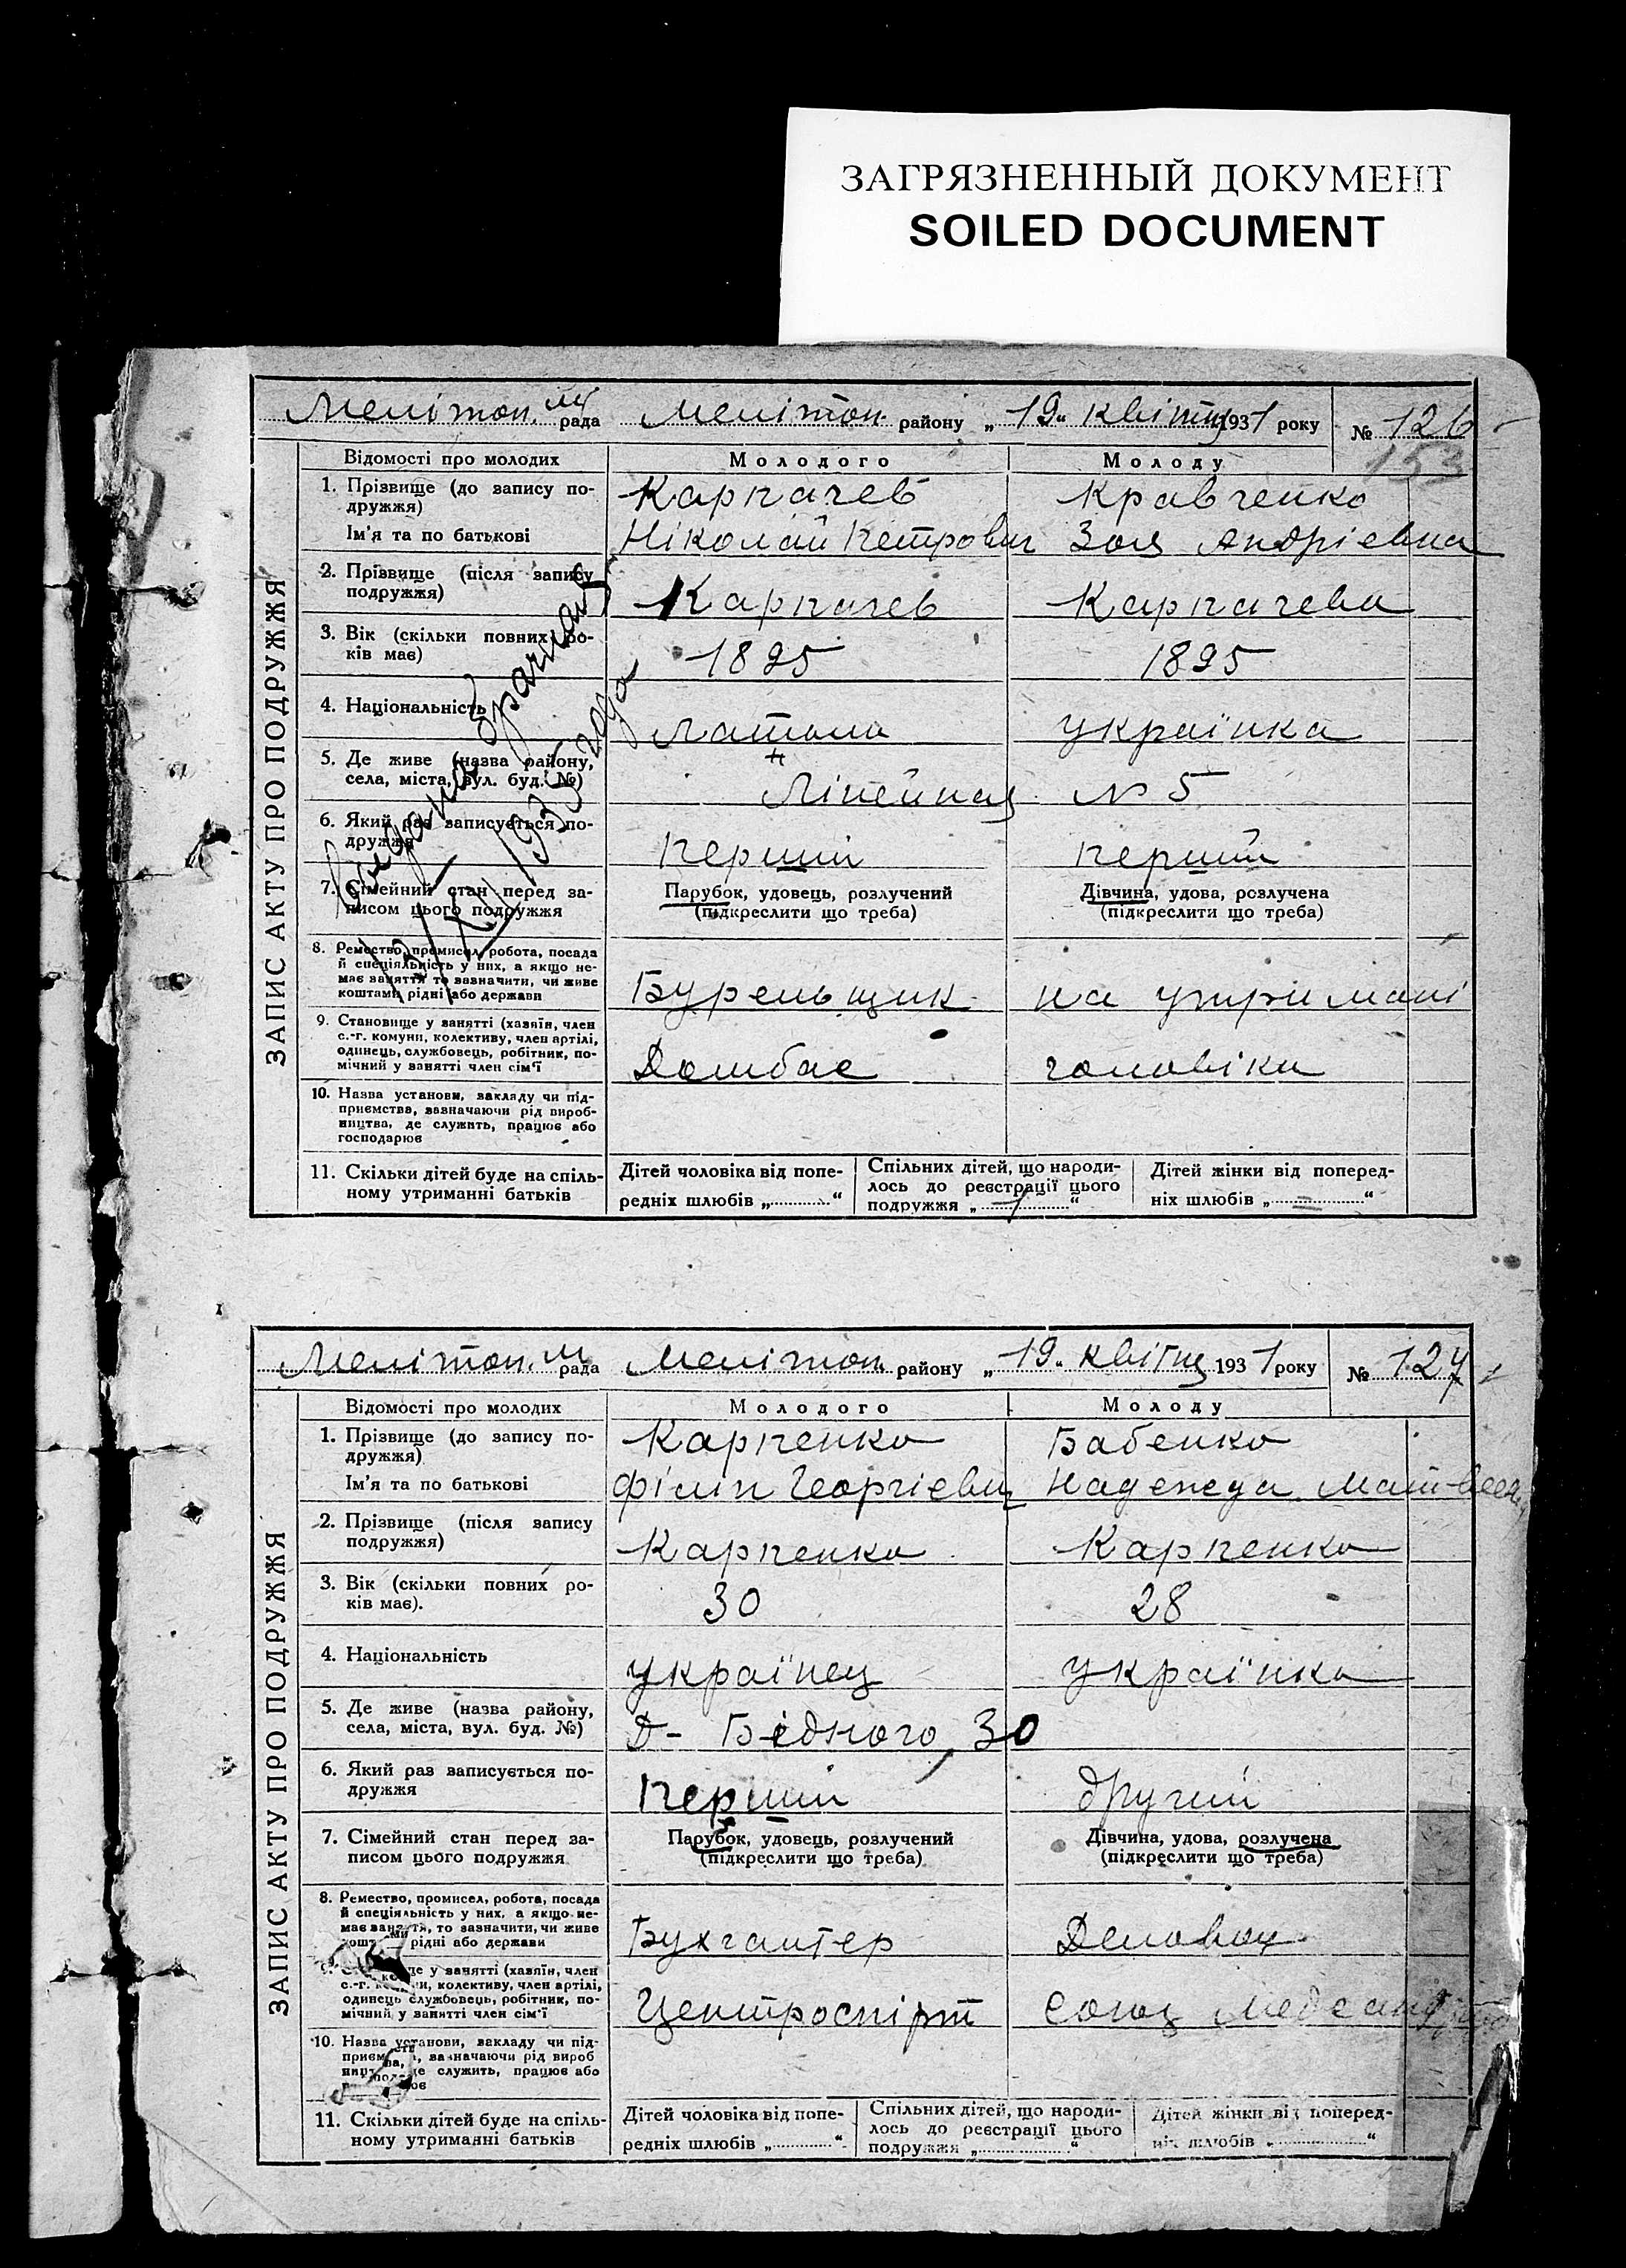 ЗАГРЯЗНЕННЫЙ ДОКУМЕНТ
SOILED DOCUMENT
Мелітоп. рада Мелітоп. району „19" квітня 1931 року № 126
153
ЗАПИС АКТУ ПРО ПОДРУЖЖЯ
Відомості про молодих Молодого Молоду
1. Прізвище (до запису по-
дружжя) Карпачев Кравченко
Ім'я та по батькові Ніколай Петрович Зоя Андріевна
2. Прізвище (після запису
подружжя) Карпачев Карпачева
3. Вік (скільки повних ро-
ків має) 1895 1895
4. Національність українка
5. Де живе (назва району,
села, міста, вул. буд. №) Лінейная № 5
6. Який раз записується по-
дружжя Перший перший
7. Сімейний стан перед за- Парубок, удовець, розлучений Дівчина, удова, розлучена
писом цього подружжя (підкреслити що треба) (підкреслити що треба)
8. Ремество, промисел, робота, посада
й спеціяльність у них, а якщо не-
має заняття то зазначити, чи живе
коштами рідні або держави Бурельщик на утримані
9. Становище у занятті (хазяїн, член
с.-г. комуни, колективу, член артілі,
одинець, службовець, робітник, по-
мічний у занятті член сім'ї чоловіка
10. Назва установи, закладу чи під-
приємства, зазначаючи рід вироб-
ництва, де служить, працює або
господарює
11. Скільки дітей буде на спіль- Дітей чоловіка від попе- Спільних дітей, що народи- Дітей жінки від поперед-
ному утриманні батьків редніх шлюбів „ " лось до реєстрації цього ніх шлюбів „ — "
подружжя „ 1 "
1935 года
Мелітоп. рада Мелітоп. району „19" квітня 1931 року № 127
ЗАПИС АКТУ ПРО ПОДРУЖЖЯ
Відомості про молодих Молодого Молоду
1. Прізвище (до запису по-
дружжя) Карпенко Бабенко
Ім'я та по батькові Філіп Георгієвич Надежда
2. Прізвище (після запису
подружжя) Карпенко Карпенко
3. Вік (скільки повних ро-
ків має). 30 28
4. Національність українец українка
5. Де живе (назва району,
села, міста, вул. буд. №) Д- Бедного, 30
6. Який раз записується по-
дружжя Перший другий
7. Сімейний стан перед за- Парубок, удовець, розлучений Дівчина, удова, розлучена
писом цього подружжя (підкреслити що треба) (підкреслити що треба)
8. Ремество, промисел, робота, посада
й спеціяльність у них, а якщо не-
має заняття, то зазначити, чи живе
рідні або держави Бухгалтер Деловод
у занятті (хазяїн, член
с.-г. колективу, член артілі,
одинець службовець, робітник, по-
мічний у занятті член сім'ї Центроспірт Союз
10. Назва установи, закладу чи під-
зазначаючи рід вироб
служить, працює або
11. Скільки дітей буде на спіль- Дітей чоловіка від попе- Спільних дітей, що народи- Дітей жінки від поперед-
ному утриманні батьків редніх шлюбів „ " лось до реєстрації цього ніх шлюбів „ "
подружжя „ "